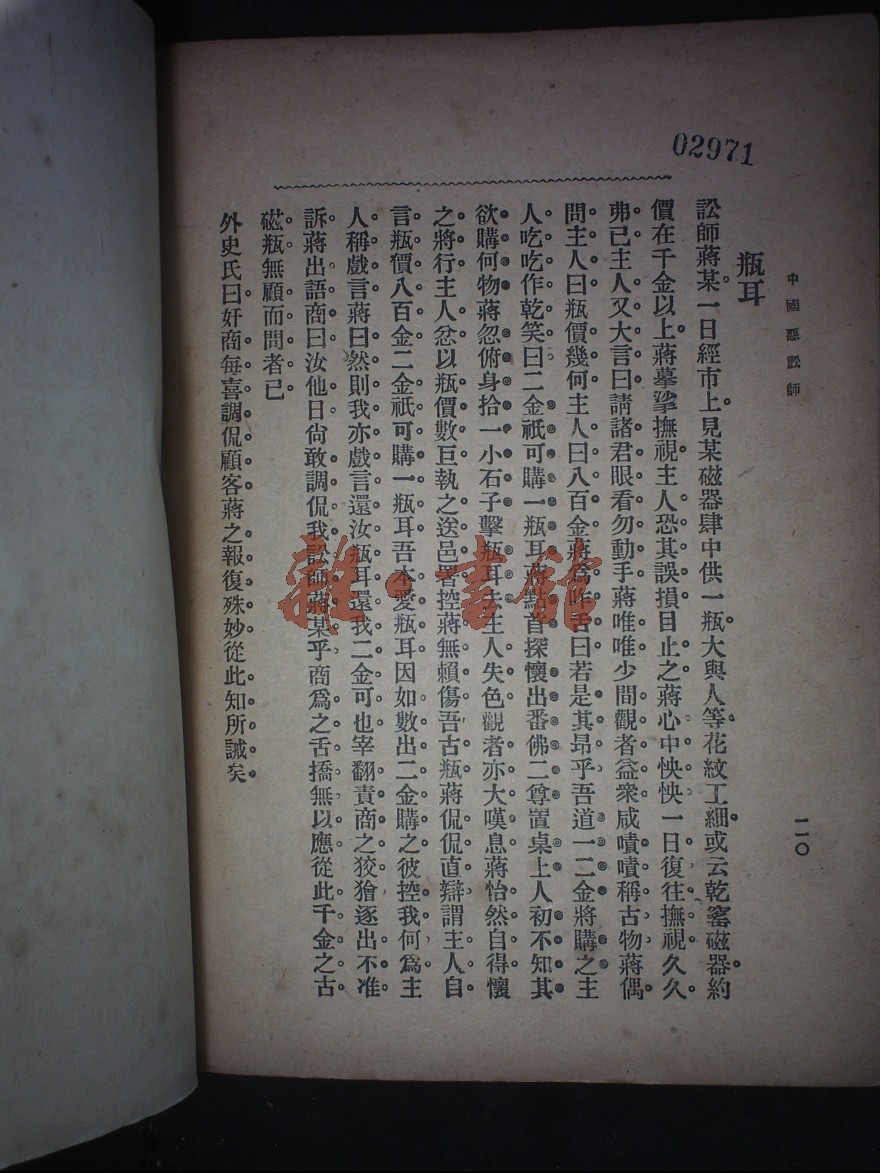 02971
中國惡訟師
二〇
瓶耳
訟師蔣某。一日經市上。見某磁器肆中供一瓶。大與人等。花紋工細。或云乾窰磁器。約
價在千金以上。蔣摹挲撫視。主人恐其誤損。目止之。蔣心中怏怏。一日復往撫視。久久
弗已。主人又大言曰。請諸君眼看勿動手。蔣唯唯。少間觀者益衆。咸嘖嘖稱古物。蔣偶
問主人曰。瓶價幾何。主人曰。八百金。蔣爲咋舌曰。若是其昂乎。吾道一二金將購之。主
人吃吃作乾笑曰。二金祇可購一瓶耳。蔣點首。探懷出番佛二尊置桌上。人初不知其
欲購何物。蔣忽俯身拾一小石子。擊瓶耳去。主人失色。觀者亦大嘆息。蔣怡然自得。懷
之將行。主人忿以瓶價數巨。執之送邑署。控蔣無賴。傷吾古瓶。蔣侃侃直辯。謂主人自
言瓶價八百金。二金祇可購一瓶耳。吾本愛瓶耳。因如數出二金購之。彼控我何爲。主
人稱戲言。蔣曰。然則我亦戲言。還汝瓶耳。還我二金可也。宰翻責商之狡獪。逐出不准
訴。蔣出語商曰。汝他日尙敢調侃我訟師蔣某乎。商爲之舌撟。無以應。從此千金之古
磁瓶。無顧而問者已。
外史氏曰。奸商每喜調侃顧客。蔣之報復殊妙。從此知所誡矣。
雜·書館